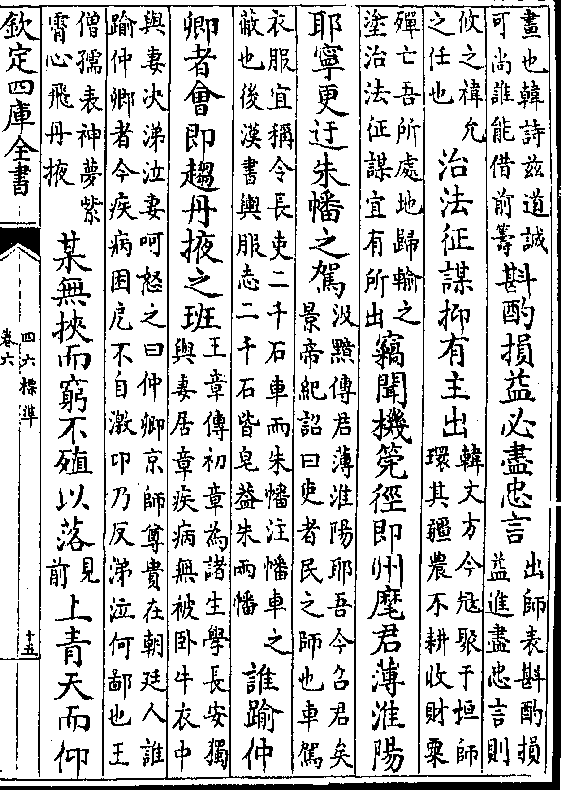 畫也韓詩兹道誠
可尚誰能借前籌
斟酌損益必盡忠言
出師表斟酌損
益進盡忠言則
攸之禕允
之任也
治法征謀抑有主出
韓文方今冦聚于垣師
環其疆農不耕收財粟
殫亡吾所處地歸輸之
塗治法征謀宜有所出
竊聞機筦徑即州麾君薄淮陽
耶寧更迂朱幡之駕
汲黯傳君薄淮陽耶吾今召君矣
景帝紀詔曰吏者民之師也車駕
衣服宜稱令長吏二千石車而朱幡注幡車之
蔽也後漢書輿服志二千石皆皂葢朱兩幡
誰踰仲
卿者會即趨丹掖之班
王章傳初章為諸生學長安獨
與妻居章疾病無被卧牛衣中
與妻决涕泣妻呵怒之曰仲卿京師尊貴在朝廷人誰
踰仲卿者今疾病困戹不自激卬乃反涕泣何鄙也王
僧孺表神夢紫
霄心飛丹掖
某無挾而窮不殖以落
見
前
上青天而仰
欽定四庫全書
四六標準
卷六
十五